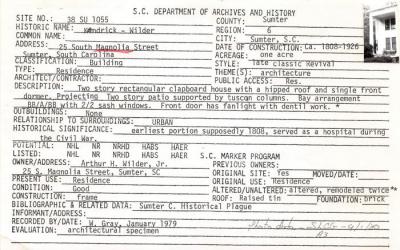 S.C. DEPARTMENT OF ARCHIVES AND HISTORY
SITE NO.: 38 SU 1055
COUNTY: Sumter
HISTORIC NAME: Kendrick - Wilder
REGION: 6
COMMON NAME:
CITY: Sumter, S.C.
ADDRESS: 25 South Magnolia Street
Sumter, South Carolina
DATE OF CONSTRUCTION: Ca. 1808-1926
ACREAGE: one acre
CLASSIFICATION: Building
STYLE: late classic Revival
TYPE: Residence
THEME(S): architecture
ARCHITECT/CONTRACTOR:
PUBLIC ACCESS: Res.
DESCRIPTION: Two story rectangular clapboard house with a hipped roof and single front
dormer. Projecting Two story patio supported by tuscan columns. Bay arrangement
BB/A/BB with 2/2 sash windows. Front door has fanlight with dentil work. *
OUTBUILDINGS: None
RELATIONSHIP TO SURROUNDINGS: URBAN
HISTORICAL SIGNIFICANCE: earliest portion supposedly 1808, served as a hospital during
the Civil War.
POTENTIAL: NHL NR NRHD HABS HAER
LISTED: NHL NR NRHD HABS HAER
S.C. MARKER PROGRAM
OWNER/ADDRESS: Arthur H. Wilder, Jr.
25 S. Magnolia Street, Sumter, SC
PREVIOUS OWNERS:
ORIGINAL SITE: Yes MOVED/DATE:
PRESENT USE: Residence
ORIGINAL USE: Residence
CONDITION: Good
ALTERED/UNALTERED: altered, remodeled twice*
CONSTRUCTION: frame
ROOF: Raised tin FOUNDATION: brick
BIBLIOGRAPHIC & RELATED DATA: Sumter C. Historical Plaque
INFORMANT/ADDRESS:
RECORDED BY/DATE: W. Gray, January 1979
EVALUATION: architectural specimen